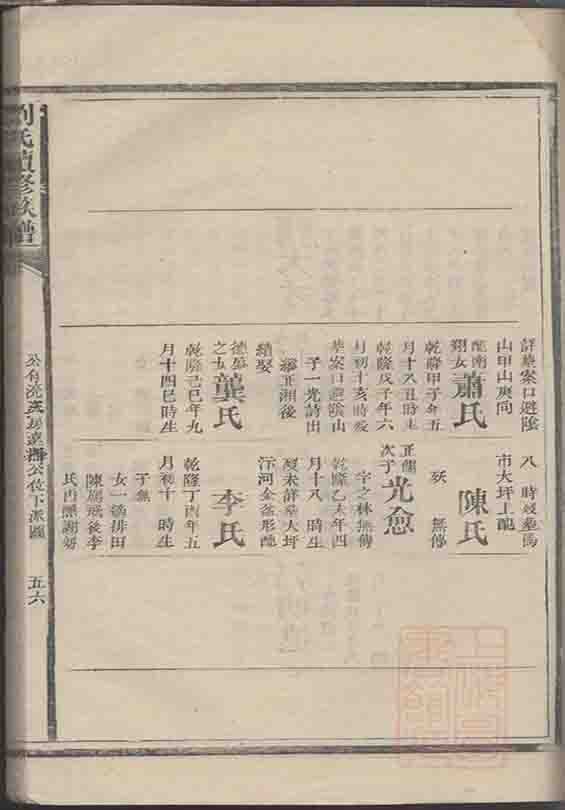 劉氏續修族譜
詳葬案口避陰
山甲山庚向
配南
翔女
蕭氏
乾隆甲子年五
月十八丑時生
乾隆戊子年六
月初十亥時歿
葬案口避陰山
子一光詩出
繼正湘後
續娶
德盛
之女
龔氏
乾隆己巳年九
月十四巳時生
八 時歿葬馬
市大坪上配
陳氏
歿 無傳
正儒
次子
光愈
字之林無傳
乾隆乙未年四
月十八 時生
歿未詳葬大坪
汴河金盆形配
李氏
乾隆丁酉年五
月初十 時生
子無
女一適排田
陳 後李
氏丙
公位下派圖
五六